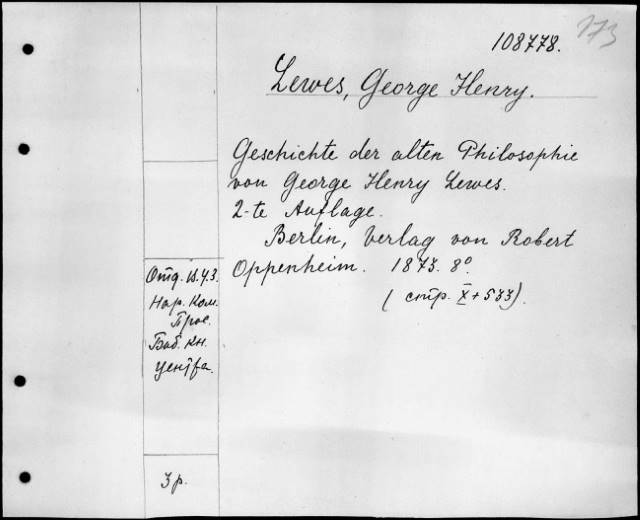 173
108778.
Lewes, George Henry.
Geschichte der alten Philosophie
von George Henry Lewes.
2-te Auflage.
Berlin, Verlag von Robert
Oppenheim. 1873. 8°.
(стр. X + 533).
Отд.
Нар. Ком.
Прос.
кн.
центра.
3 р.